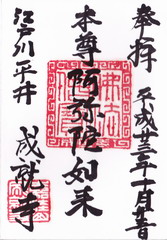 奉拝
平成廿三年一月廿一日
本尊阿弥陀如来
江戸川平井
成就寺